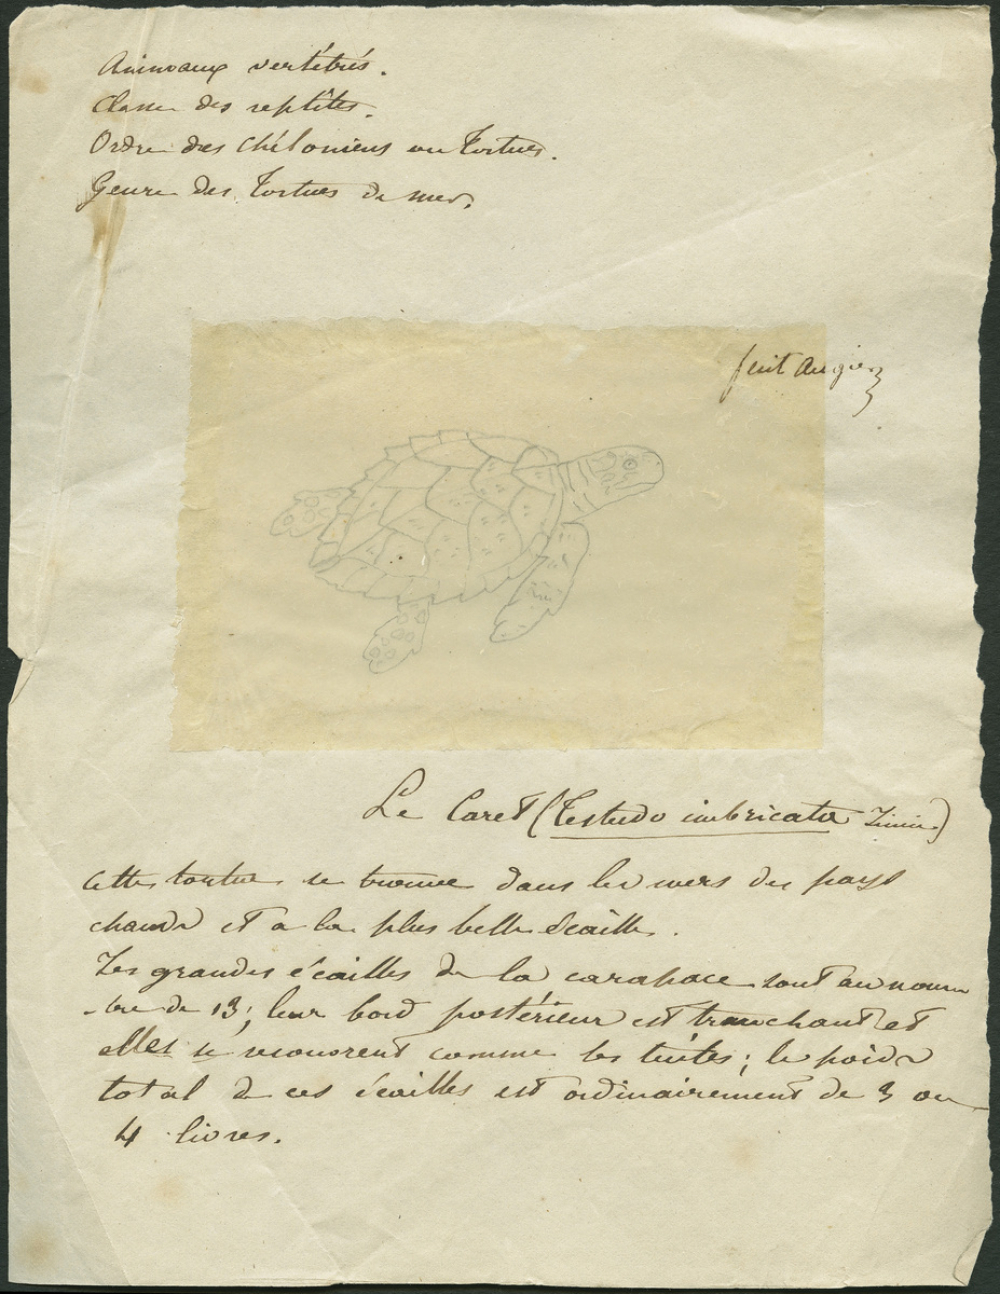 Animaux vertébrés.
Classe des reptiles.
Ordre des chéloniens ou Tortues.
Genre des Tortues de mer.
fuit
Le Caret (Testudo imbricata Linn.)
Cette tortue se trouve dans les mers des pays
chauds et a la plus belle écaille.
Les grandes écailles de la carapace sont au nom
-bre de 13; leur bord postérieur est tranchant et
elles se recouvrent comme les tuiles; le poids
total de ces écailles est ordinairement de 3 ou
4 livres.